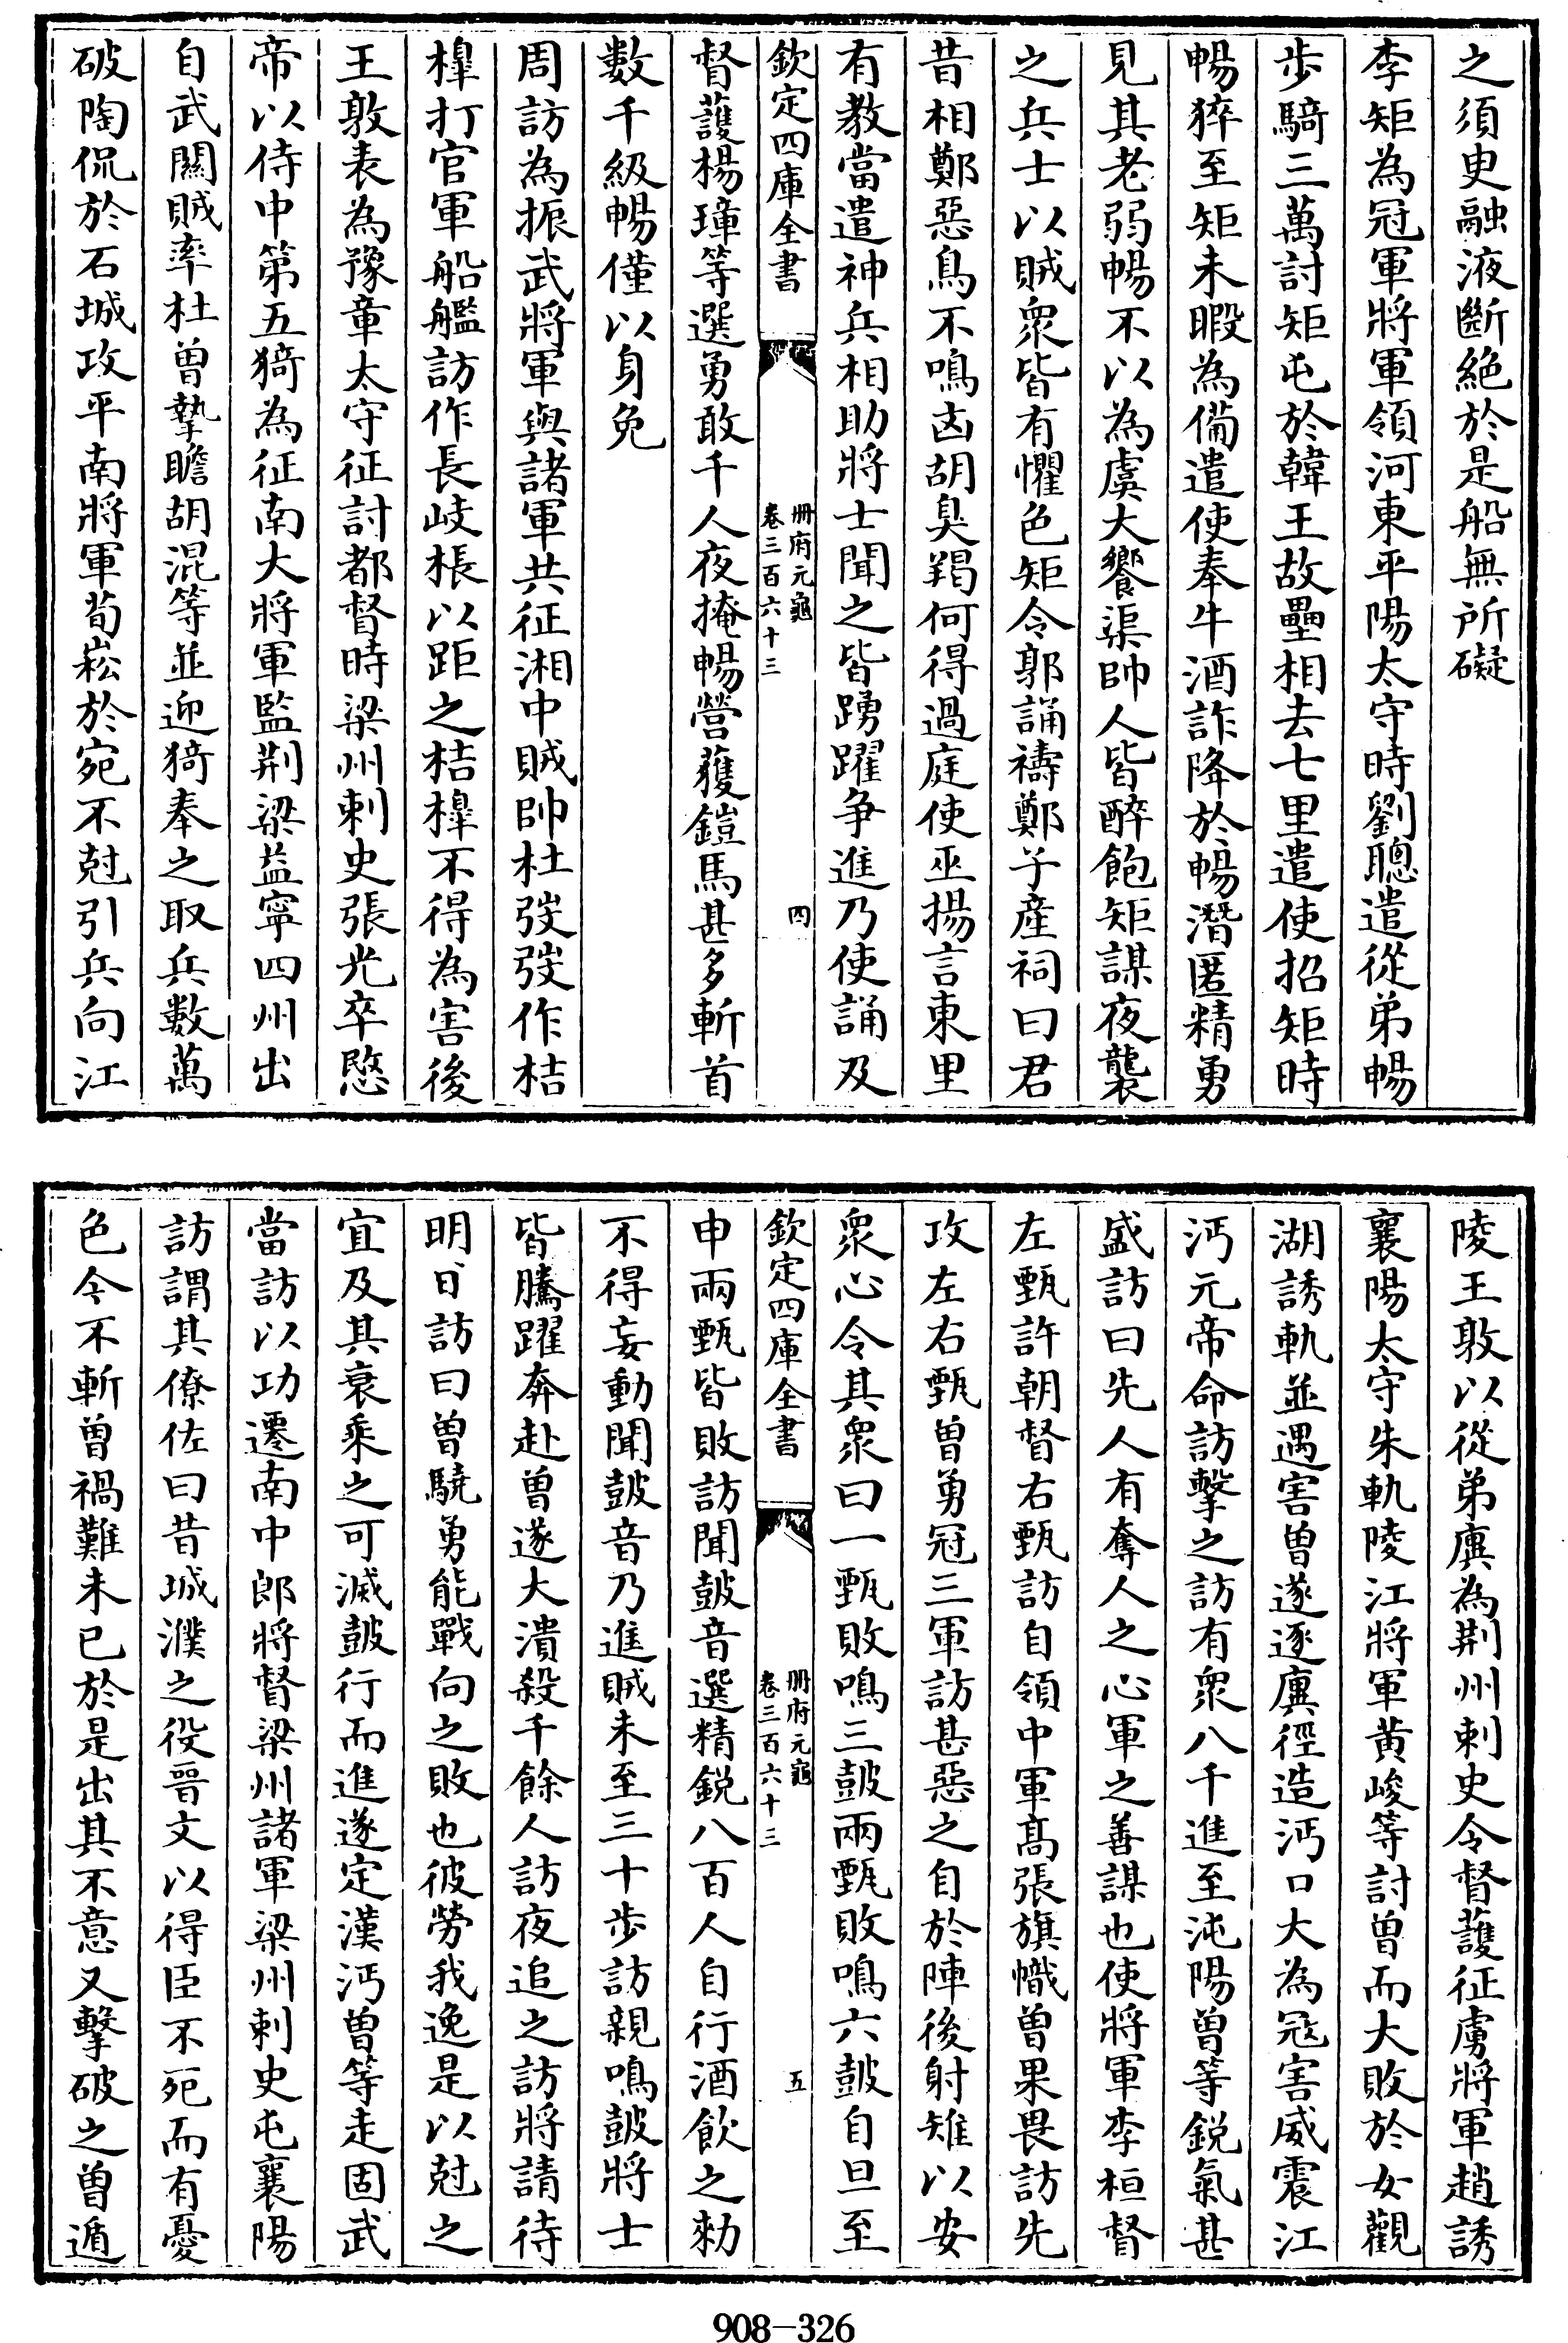 之須臾融液斷絶於是船無所礙
李矩為冠軍將軍領河東平陽太守時劉聰遣從弟暢
歩騎三萬討矩屯於韓王故壘相去七里遣使招矩時
暢猝至矩未暇為備遣使奉牛酒詐降於暢潛匿精勇
見其老弱暢不以為虞大饗渠帥人皆醉飽矩謀夜襲
之兵士以賊衆皆有懼色矩令郭誦禱鄭子產祠曰君
昔相鄭惡鳥不鳴凶胡臭羯何得過庭使巫揚言東里
有教當遣神兵相助將士聞之皆踴躍争進乃使誦及
欽定四庫全書
冊府元龜
卷三百六十三
四
督護楊璋等選勇敢千人夜掩暢營獲鎧馬甚多斬首
數千級暢僅以身免
周訪為振武將軍與諸軍共征湘中賊帥杜弢弢作桔
橰打官軍船艦訪作長岐棖以距之桔橰不得為害後
王敦表為豫章太守征討都督時梁州刺史張光卒愍
帝以侍中第五猗為征南大將軍監荆梁益寧四州出
自武關賊率杜曾摯瞻胡混等並迎猗奉之取兵數萬
破陶侃於石城攻平南將軍荀崧於宛不尅引兵向江
陵王敦以從弟廙為荆州刺史令督護征虜將軍趙誘
襄陽太守朱軌陵江將軍黄峻等討曾而大敗於女觀
湖誘軌並遇害曾遂逐廙徑造沔口大為冦害威震江
沔元帝命訪擊之訪有衆八千進至沌陽曾等鋭氣甚
盛訪曰先人有奪人之心軍之善謀也使將軍李桓督
左甄許朝督右甄訪自領中軍髙張旗幟曾果畏訪先
攻左右甄曾勇冠三軍訪甚惡之自於陣後射雉以安
衆心令其衆曰一甄敗鳴三鼓兩甄敗鳴六鼓自旦至
欽定四庫全書
冊府元龜
卷三百六十三
五
申兩甄皆敗訪聞鼓音選精鋭八百人自行酒飲之勑
不得妄動聞鼓音乃進賊未至三十歩訪親鳴鼓將士
皆騰躍奔赴曾遂大潰殺千餘人訪夜追之訪將請待
明日訪曰曾驍勇能戰向之敗也彼勞我逸是以尅之
宜及其衰乘之可滅鼓行而進遂定漢沔曾等走固武
當訪以功遷南中郎將督梁州諸軍梁州刺史屯襄陽
訪謂其僚佐曰昔城濮之役晉文以得臣不死而有憂
色今不斬曾禍難未已於是出其不意又擊破之曾遁
908—326